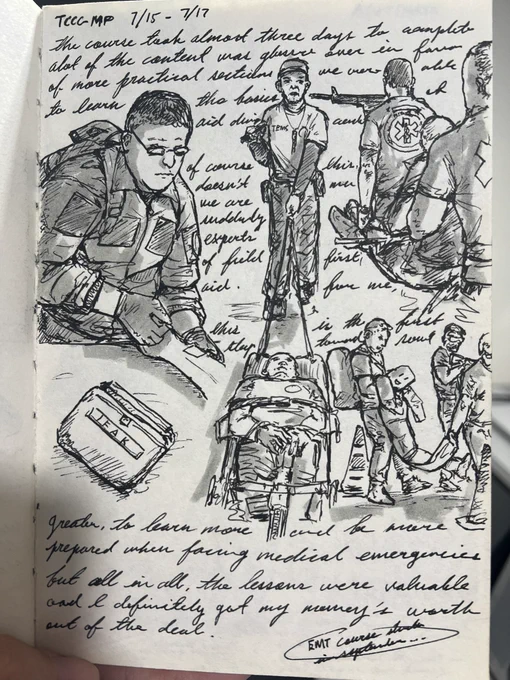 TCCC-MP 7/15 - 7/17
the course took almost three days to complete
alot of the content was glossed over in favor
of more practical sections we were able
to learn the basics of
aid during
TEMS
of course this
doesn't mean
we are
suddenly
experts
of field first
aid. for me,
this is the first
step toward
IFAK
greater, to learn more and be more
prepared when facing medical emergencies
but all in all, the lessons were valuable
and I definitely got my money's worth
out of the deal.
EMT Course starts
in september...